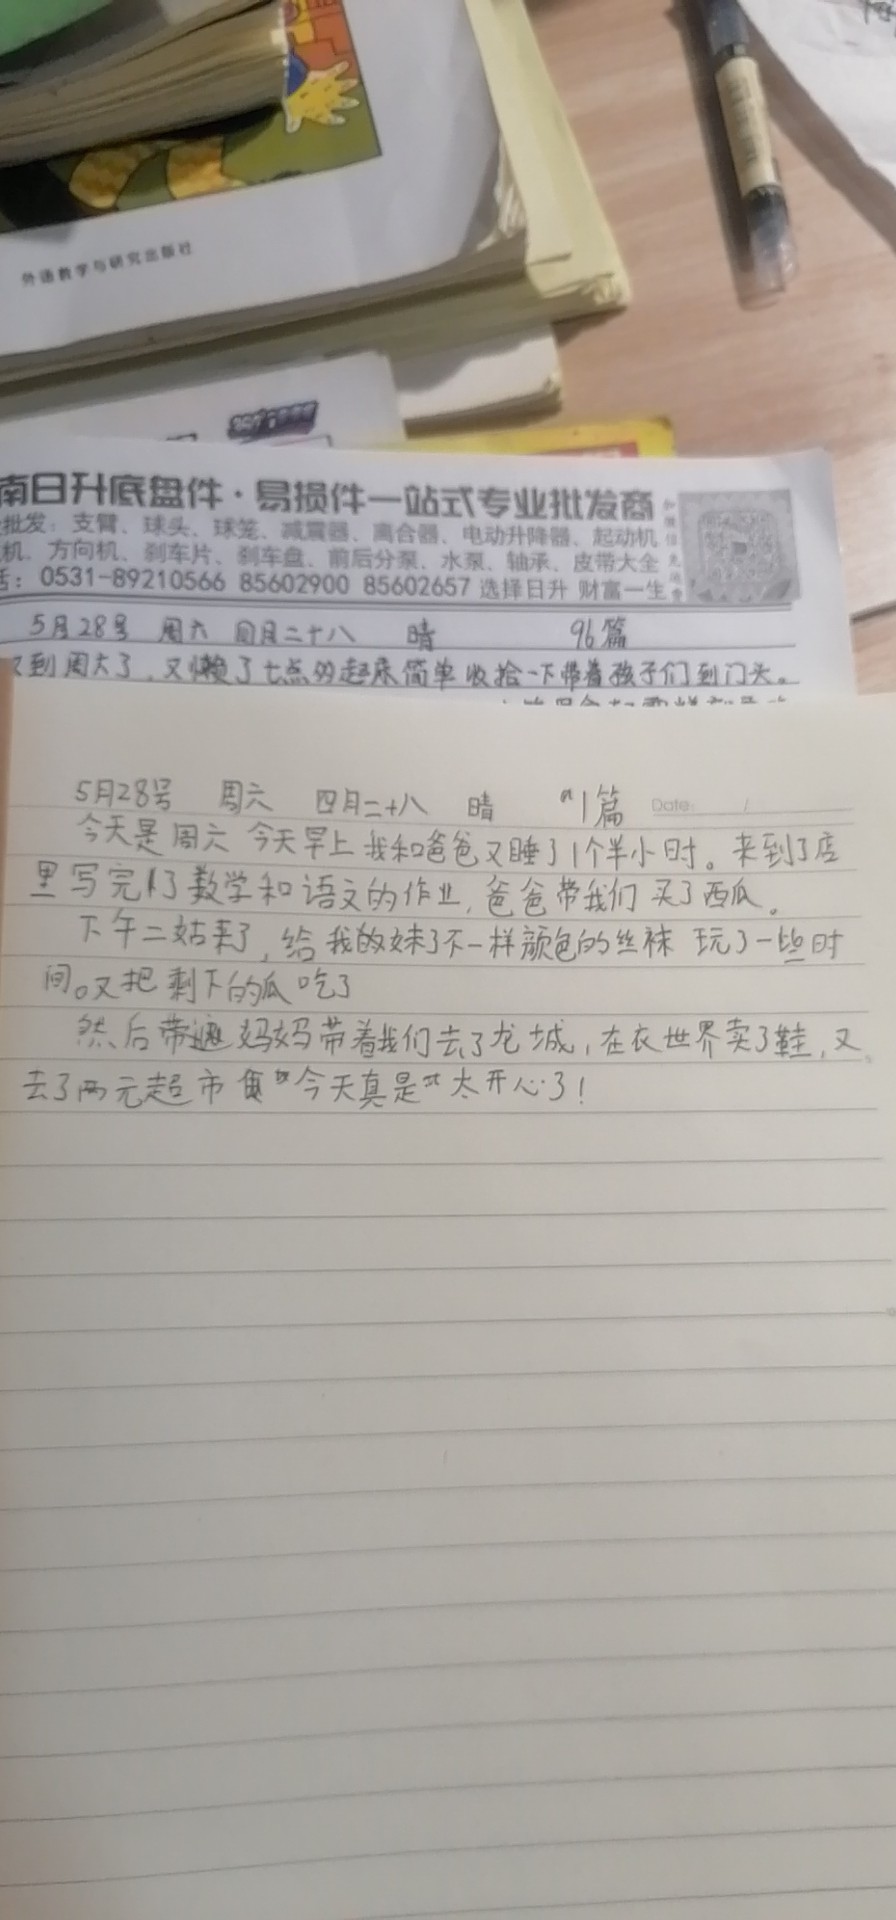 外语教学与研究出版社
南日升底盘件·易损件一站式专业批发商
批发：支臂、球头、球笼、减震器、离合器、电动升降器、起动机
机、方向机、刹车片、刹车盘、前后分泵、水泵、轴承、皮带大全
话：0531-89210566 85602900 85602657 选择日升 财富一生
5月28号 周六 四月二十八 晴 96篇
又到周六了，又懒了七点多起床简单收拾一下带着孩子们到门头。
5月28号 周六 四月二十八 晴 1篇 Date: /
今天是周六 今天早上我和爸爸又睡了1个半小时。来到了店
里写完了数学和语文的作业，爸爸带我们买了西瓜。
下午二姑来了，给我的妹了不一样颜色的丝袜 玩了一些时
间。又把剩下的瓜吃了
然后带 妈妈带着我们去了龙城，在衣世界卖了鞋，又
去了两元超市 今天真是 太开心了！